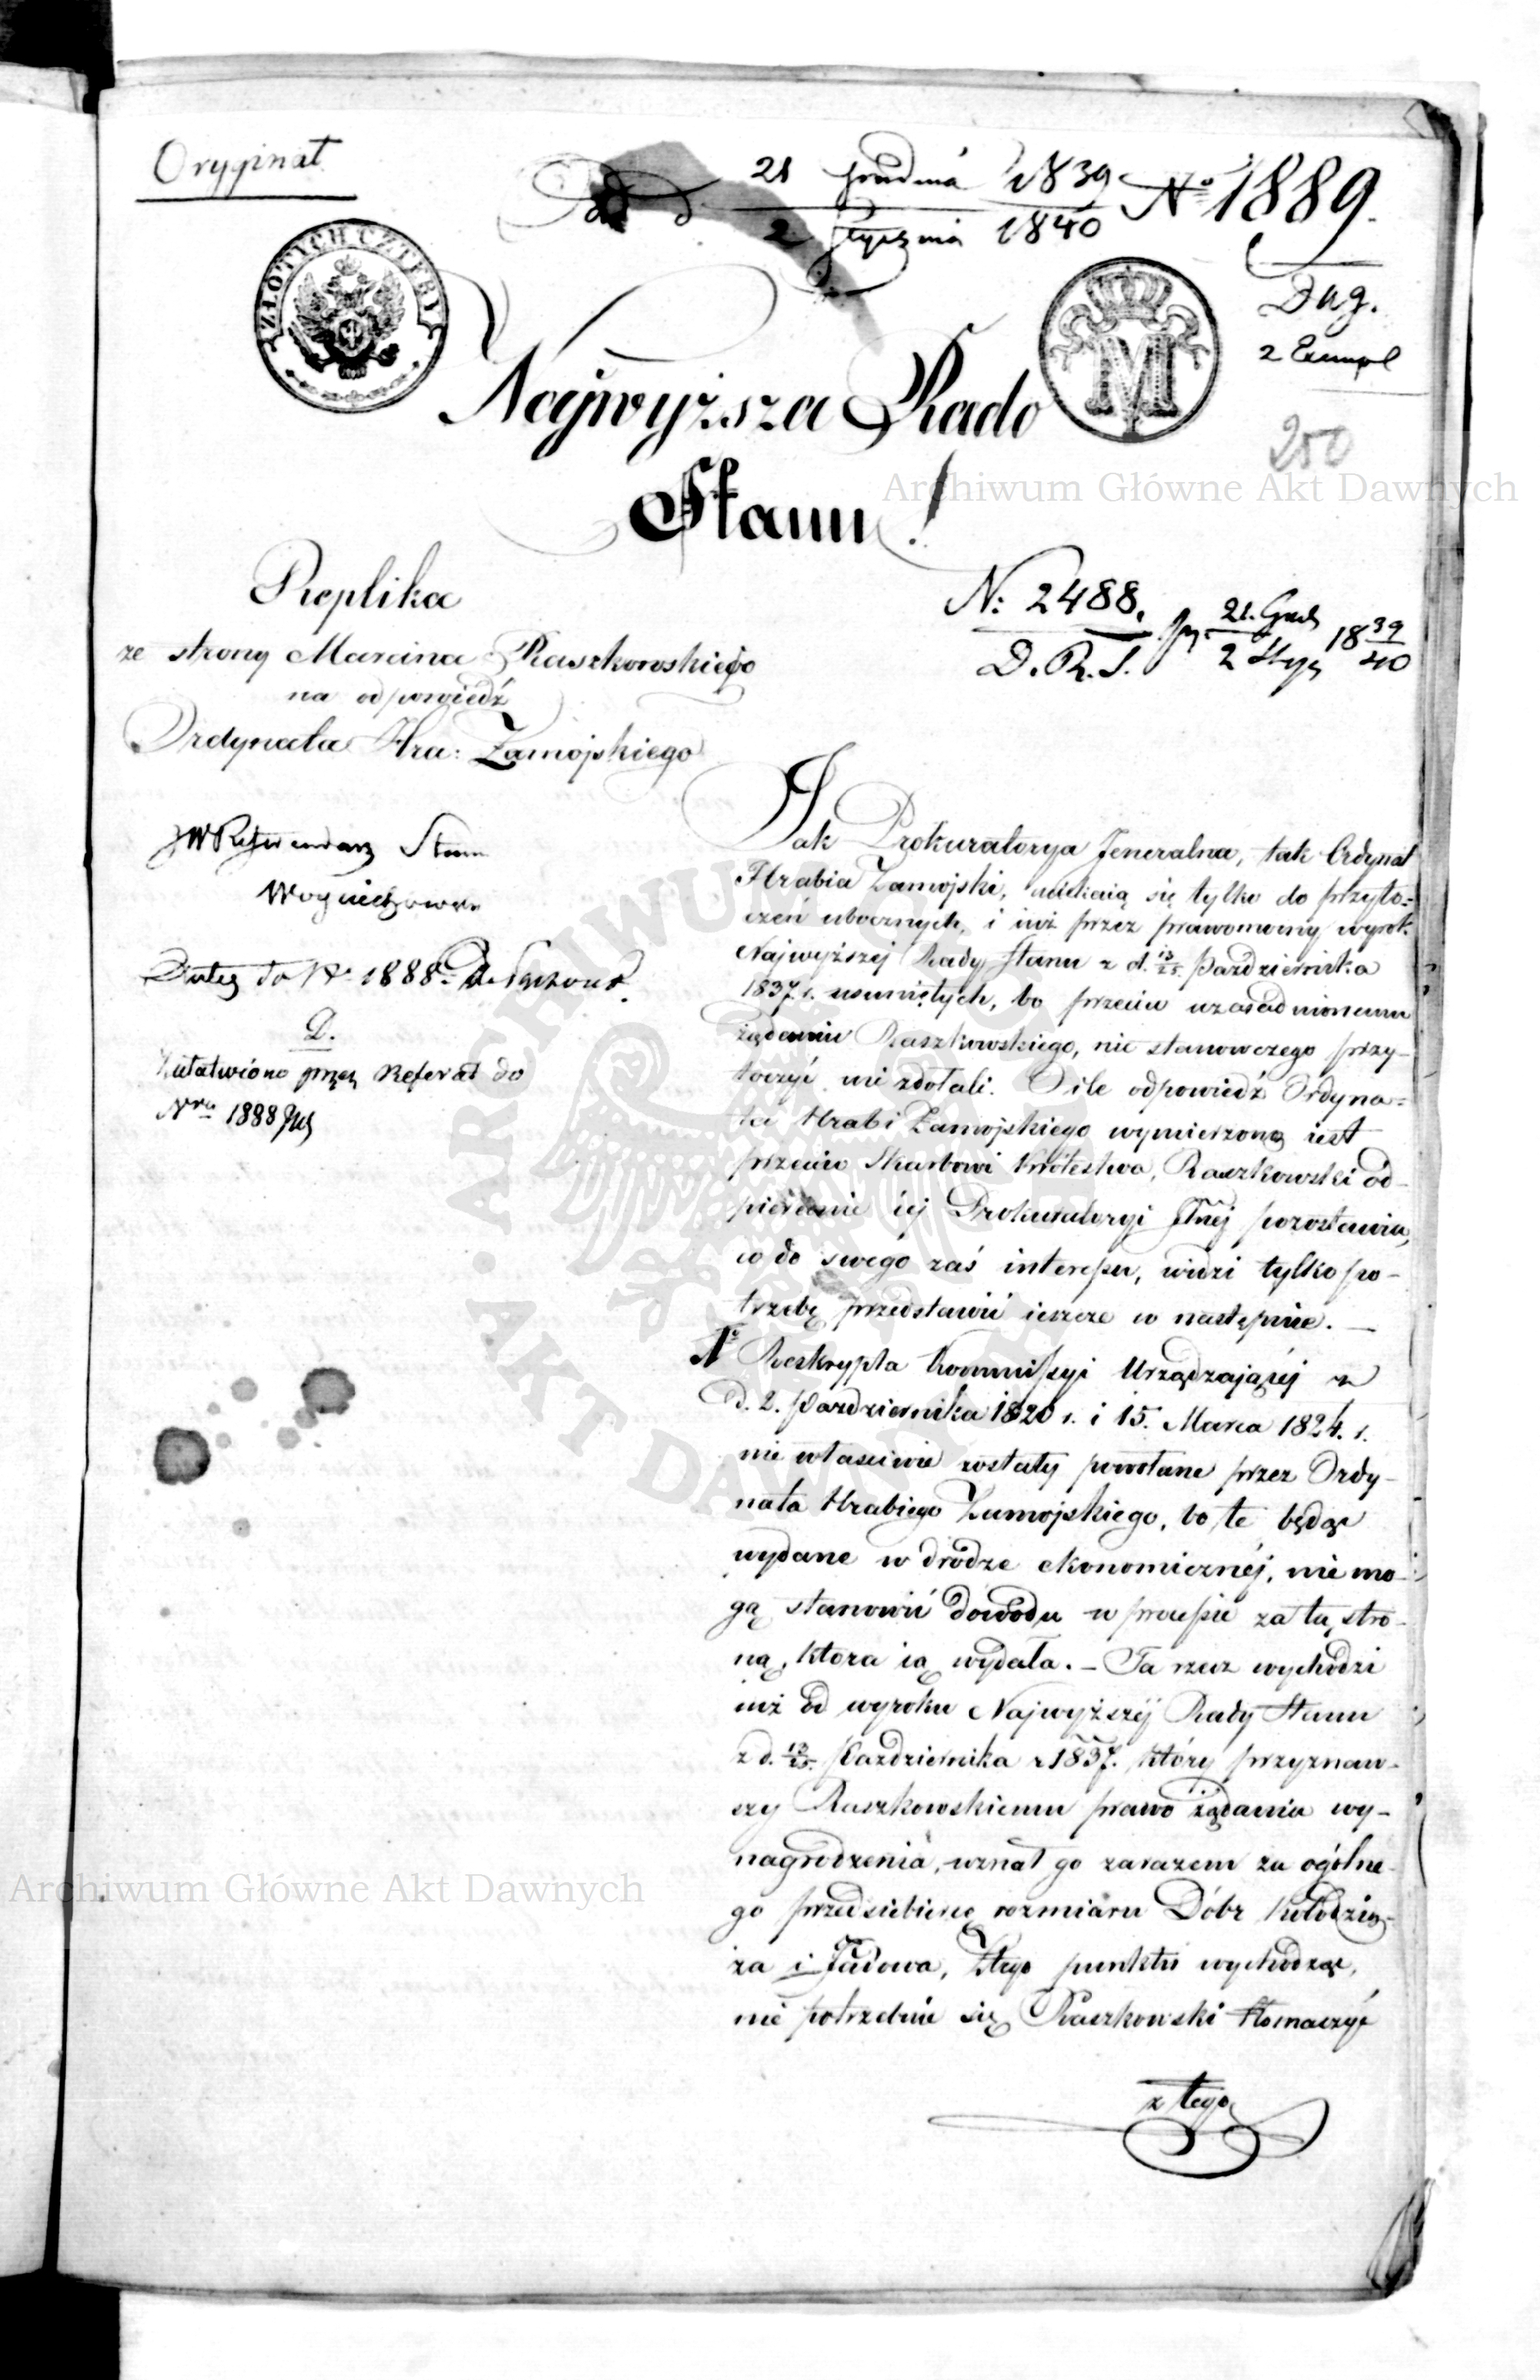 Oryginał
21 Grudnia 1839
2 Stycznia 1840
No 1889.
Dug.
2 Exempl
250
ZŁOTYCH CZTERY
M
Najwyższa Rado
Stanu!
Archiwum Główne Akt Dawnych
N: 2488.
D. R. S.
21. Grud
2 Stycz
18 39/40
Replika
ze strony Marcina Raszkowskiego
na odpowiedź
Ordynata Hra: Zamojskiego
JW Referendarz Stanu
No 1888
D.
Załatwiono przez Referat do
Nru 1888
Jak Prokuratorya Jeneralna, tak Ordynat
Hrabia Zamojski, uciekaią się tylko do przyto=
czeń ubocznych, i iuż przez prawomocny wyrok
Najwyższej Rady Stanu z d. 13/25. Października
1837. r. usuniętych, bo przeciw uzasadnionemu
żądaniu Raszkowskiego, nic stanowczego przy-
toczyć nie zdołali. O ile odpowiedź Ordyna=
ta Hrabi Zamojskiego wymierzona iest
przeciw Skarbowi Królestwa, Raszkowski od-
pieranie iej Prokuratoryi Jlnéj pozostawia,
co do swego zaś interessu, widzi tylko po-
trzebę przedstawić ieszcze co następuie. —
1o Reskrypta Kommissyi Urządzającéj z
d. 2. Października 1820 r. i 15. Marca 1824. r.
nie właściwie zostały powołane przez Ordy-
nata Hrabiego Zamojskiego, bo te będąc
wydane w drodze ekonomicznéj, nie mo-
gą stanowić dowodu w processie za tą stro-
ną, ktora ią wydała. – Ta rzecz wychodzi
iuż od wyroku Najwyższéj Rady Stanu
z d. 13/25. Października r 1837. który przyznaw-
szy Raszkowskiemu prawo żądania wy-
nagrodzenia, uznał go zarazem za ogólne-
go przedsiebiercę rozmiaru Dóbr Kołodzią-
ża i Jadowa, Z tego punktu wychodząc,
nie potrzebuie się Raszkowski tłomaczyć
z tego
Archiwum Główne Akt Dawnych
ARCHIWUM GŁÓWNE AKT DAWNYCH